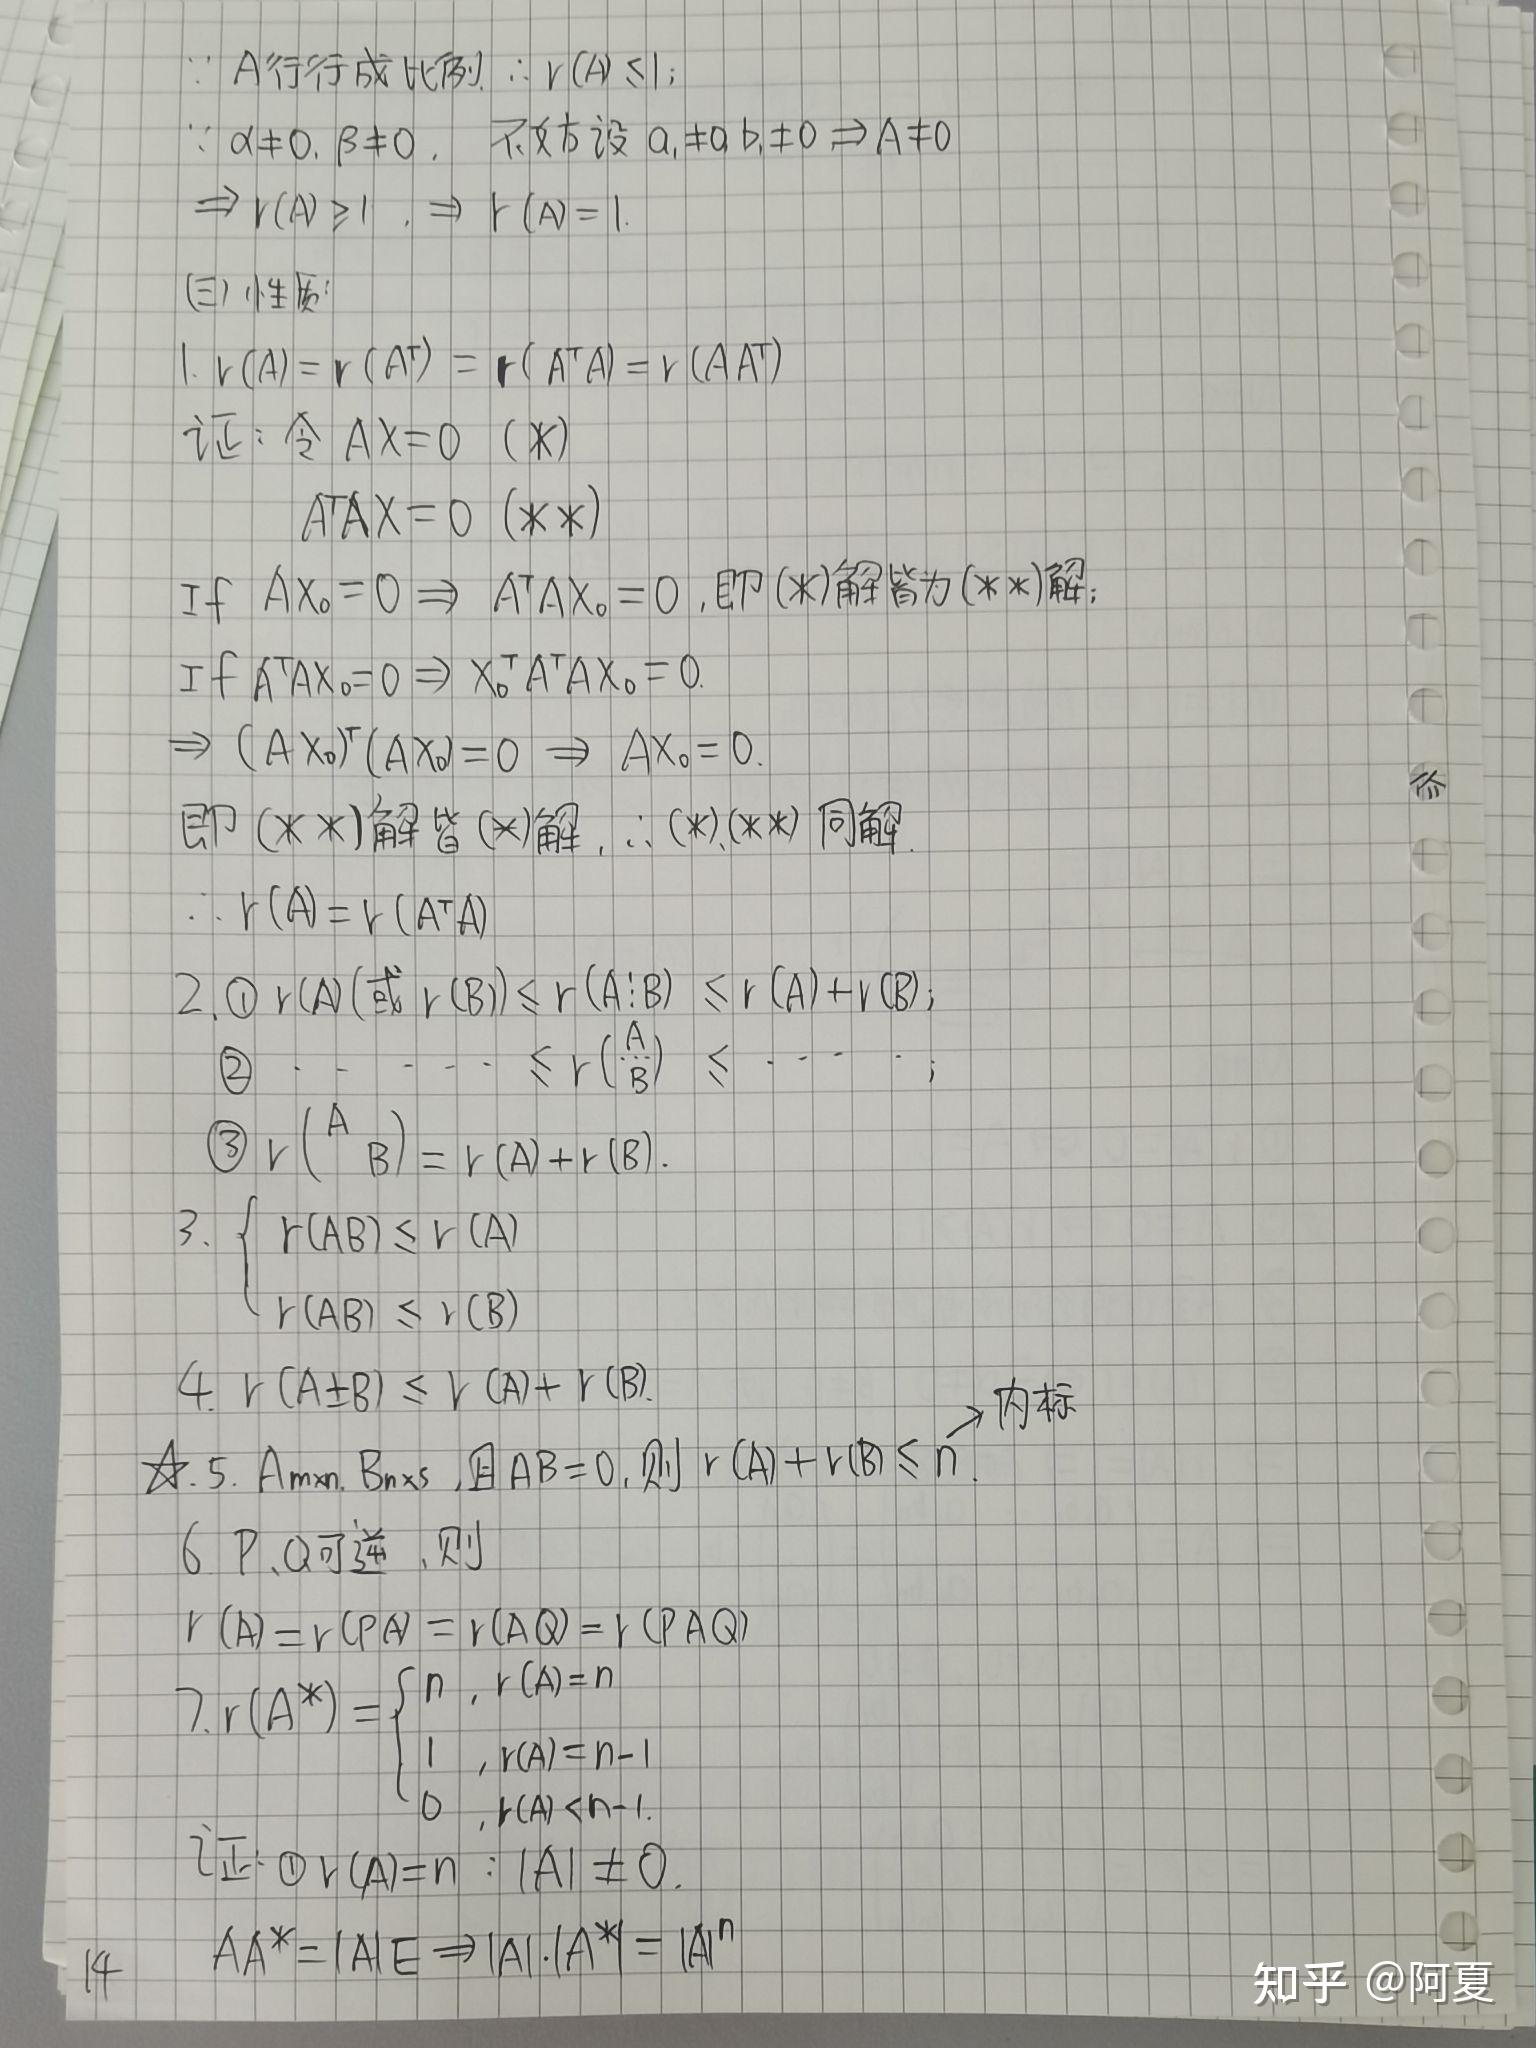 ∵ A行行成比例 ∴ r(A)≤1;
∵ α≠0, β≠0, 不妨设 a₁≠0, b₁≠0 ⇒ A≠0
⇒ r(A)≥1, ⇒ r(A)=1.
(三) 性质:
1. r(A)=r(Aᵀ)=r(AᵀA)=r(AAᵀ)
证: 令 AX=0 (*)
AᵀAX=0 (**)
If AX₀=0 ⇒ AᵀAX₀=0, 即(*)解皆为(**)解;
If AᵀAX₀=0 ⇒ X₀ᵀAᵀAX₀=0.
⇒ (AX₀)ᵀ(AX₀)=0 ⇒ AX₀=0.
即(**)解皆(*)解, ∴ (*)、(**)同解.
∴ r(A)=r(AᵀA)
2. ① r(A)(或 r(B))≤r(A⋮B)≤r(A)+r(B);
② · · · · · ≤ r(A/B) ≤ · · · · ;
③ r(A B)=r(A)+r(B).
3. { r(AB)≤r(A)
r(AB)≤r(B)
4. r(A±B)≤r(A)+r(B).
☆.5. Aₘₓₙ, Bₙₓₛ, 且AB=0, 则 r(A)+r(B)≤n. → 内标
6 P、Q可逆, 则
r(A)=r(PA)=r(AQ)=r(PAQ)
7. r(A*)={ n, r(A)=n
1, r(A)=n-1
0, r(A)<n-1.
证: ① r(A)=n : |A|≠0.
AA*=|A|E ⇒ |A|·|A*|=|A|ⁿ
14
知乎 @阿夏